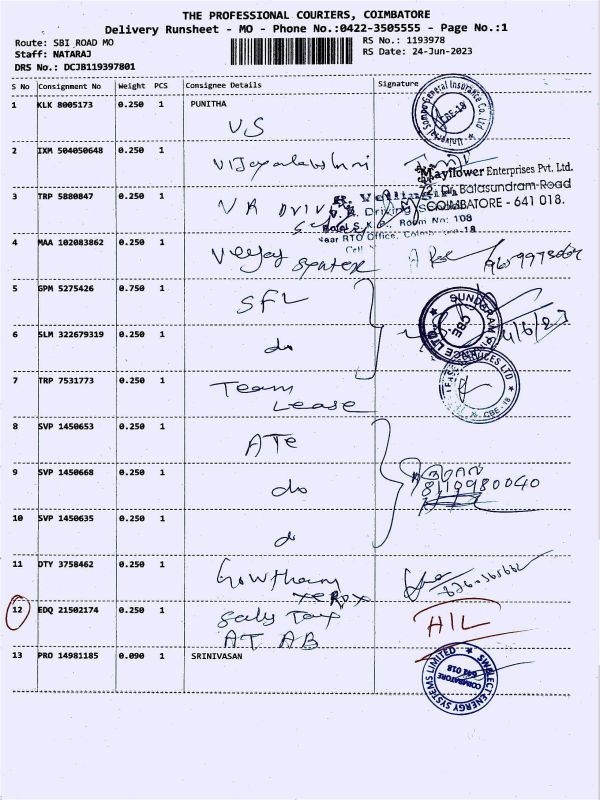 THE PROFESSIONAL COURIERS, COIMBATORE
Delivery Runsheet - MO - Phone No.:0422-3505555 - Page No.:1
Route: SBI ROAD MO
RS No.: 1193978
Staff: NATARAJ
RS Date: 24-Jun-2023
DRS No.: DCJB119397801
S No Consignment No Weight PCS Consignee Details Signature
1 KLK 8005173 0.250 1 PUNITHA
US
Universal Sompo General Insurance Co. Ltd
CBE-18
2 IXM 504050648 0.250 1
Mayflower Enterprises Pvt. Ltd.
72, Dr. Balasundram Road
COIMBATORE - 641 018.
3 TRP 5880847 0.250 1 VR
Driving
Room No: 108
Near RTO Office,
4 MAA 102083862 0.250 1 Veejay
5 GPM 5275426 0.750 1 SFL
SUNDARAM
CBE
6 SLM 322679319 0.250 1 do
7 TRP 7531773 0.250 1 Team
Lease
CBE-18
8 SVP 1450653 0.250 1 ATe
9 SVP 1450668 0.250 1 do
8119980040
10 SVP 1450635 0.250 1 do
11 DTY 3758462 0.250 1 Gowtham
xerox
12 EDQ 21502174 0.250 1 Sales Tax
AT AB
H/L
13 PRO 14981185 0.090 1 SRINIVASAN
SWELECT ENERGY SYSTEMS LIMITED
COIMBATORE
641 018